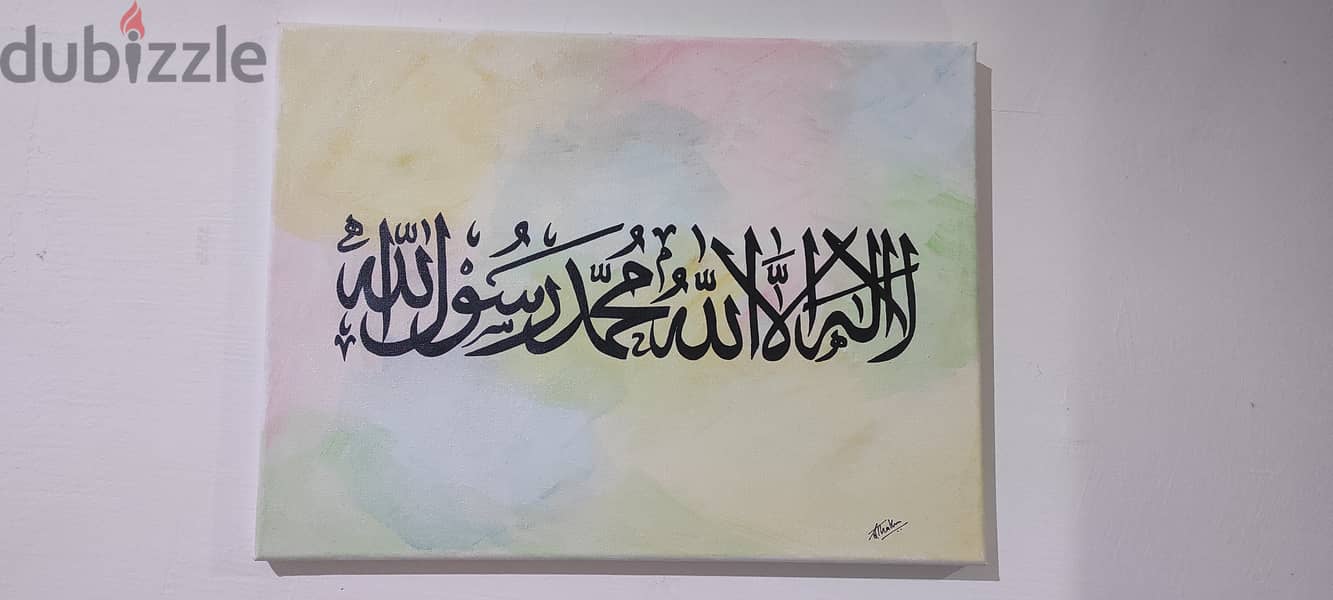 dubizzle
لا إله إلا الله محمد رسول الله